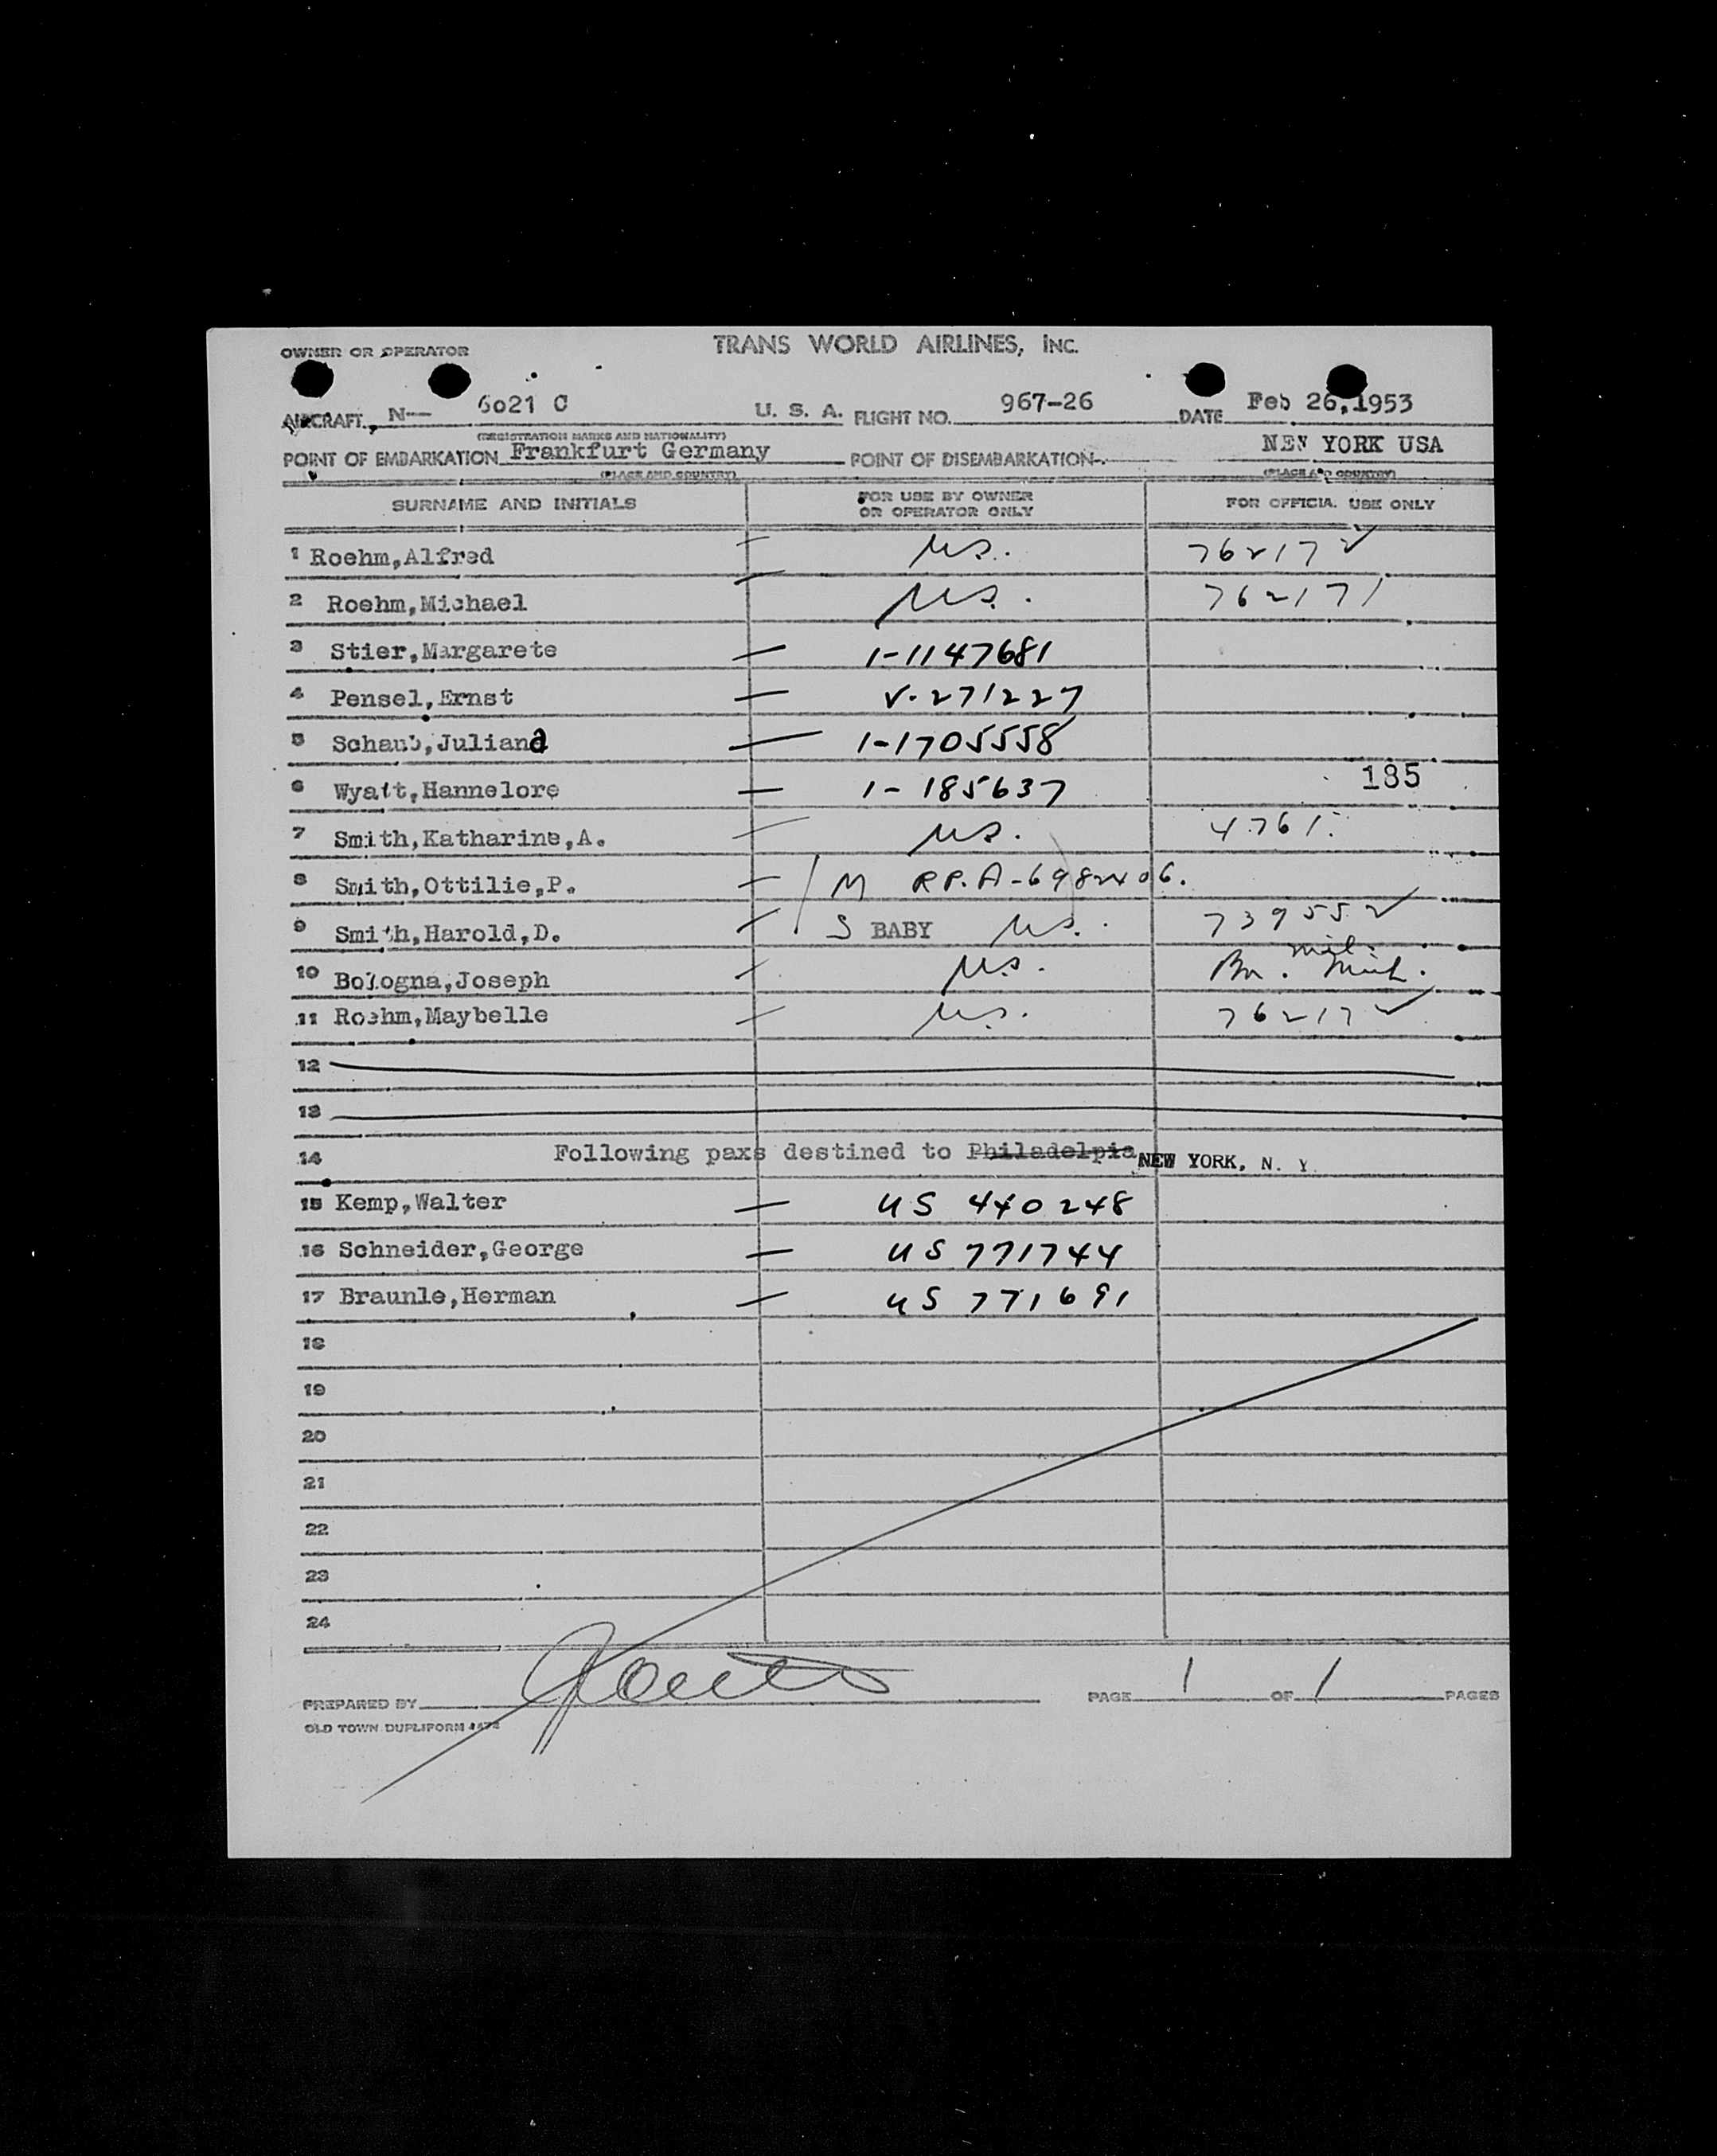 TRANS WORLD AIRLINES, INC.
OWNER OR OPERATOR
AIRCRAFT, N— 6021 C U. S. A. FLIGHT NO. 967-26 DATE Feb 26,1953
(REGISTRATION MARKS AND NATIONALITY)
POINT OF EMBARKATION Frankfurt Germany POINT OF DISEMBARKATION NEW YORK USA
(PLACE AND COUNTRY) (PLACE AND COUNTRY)
SURNAME AND INITIALS FOR USE BY OWNER OR OPERATOR ONLY FOR OFFICIAL USE ONLY
1 Roehm,Alfred — US. 762172
2 Roehm,Michael — US. 762171
3 Stier,Margarete — 1-1147681
4 Pensel,Ernst — V-271227
5 Schaub,Juliana — 1-1705558
6 Wyatt,Hannelore — 1-185637 185
7 Smith,Katharine,A. — US. 4761
8 Smith,Ottilie,P. — M RP.A-6982406.
9 Smith,Harold,D. — S BABY US. 739552
10 Bologna,Joseph — US. mil.
11 Roehm,Maybelle — US. 762172
12
13
14 Following paxs destined to Philadelpia NEW YORK, N. Y.
15 Kemp,Walter — US 440248
16 Schneider,George — US 771744
17 Braunle,Herman — US 771691
18
19
20
21
22
23
24
PREPARED BY PAGE 1 OF 1 PAGES
OLD TOWN DUPLIFORM